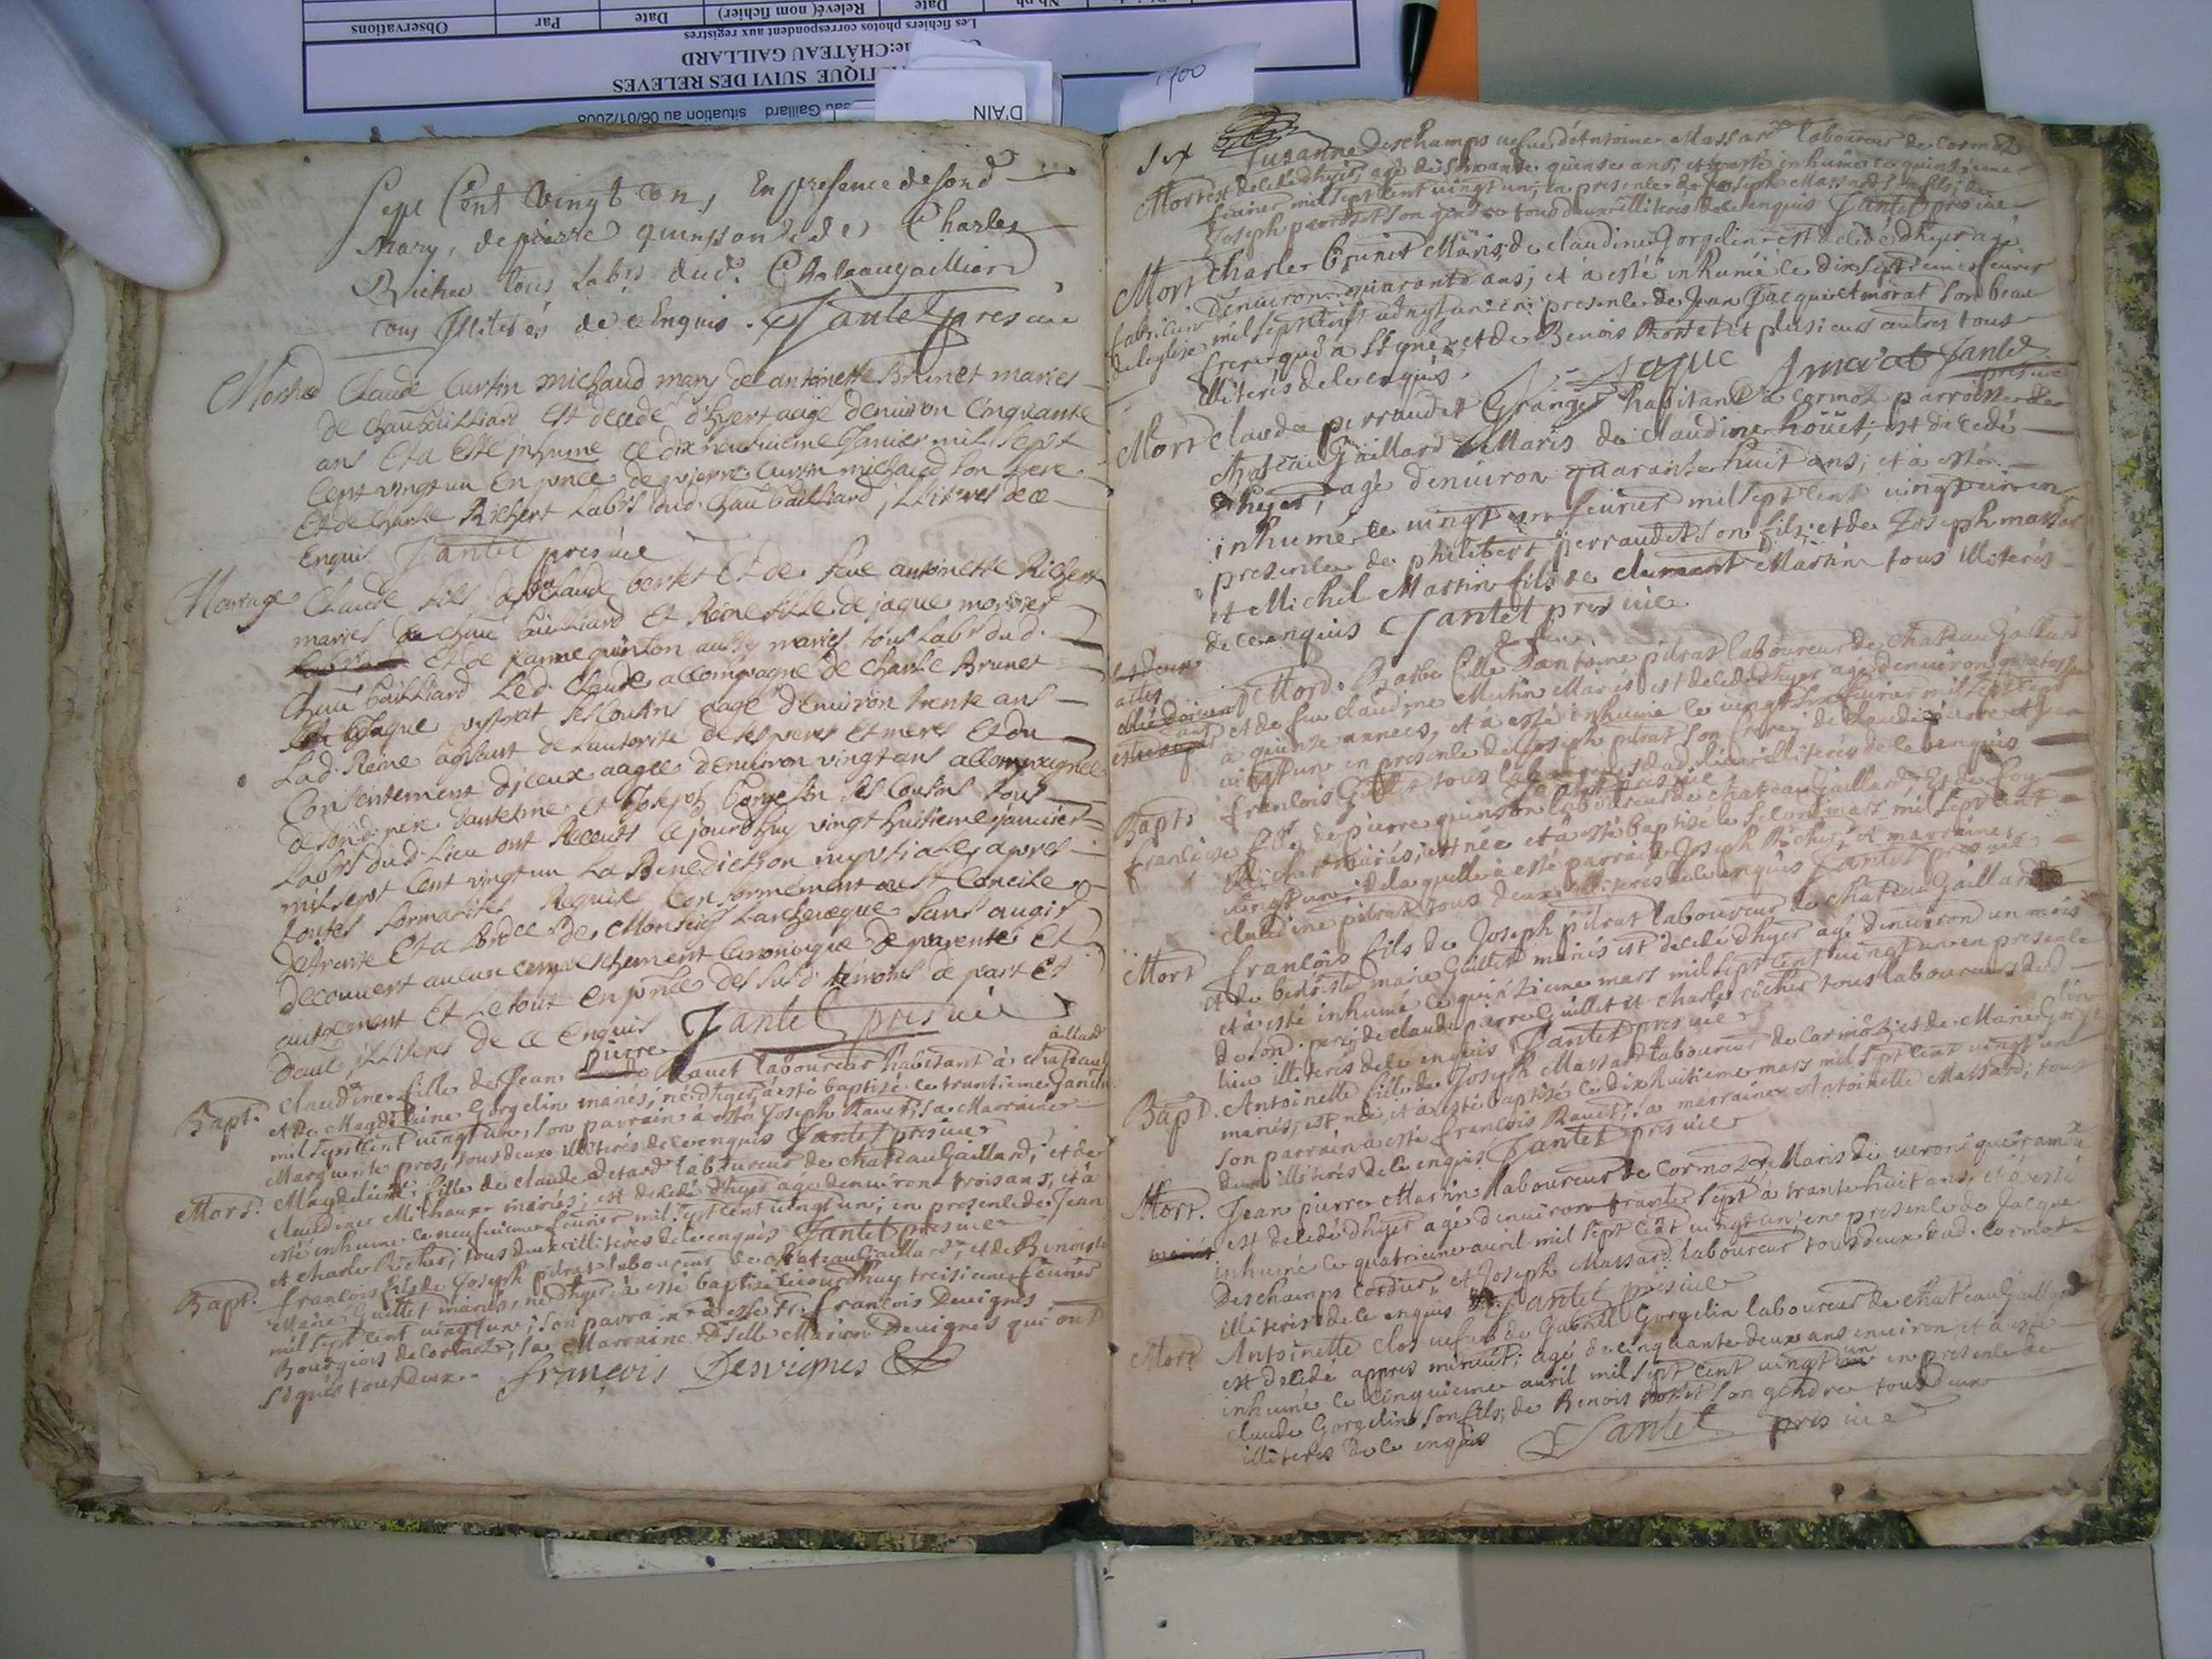 Observations
Par
Date
Relevé( nom fichier)
Date
Nb ph
Les fichiers photos correspondent aux registres
CHÂTEAU GAILLARD
TIQUE SUIVI DES RELEVES
Gaillard situation au 06/01/2008
D'AIN
1700
Sept Cent Vingt un, En presence de sond
mary, de pierre quinson et de Charles
Richer tous labrs dud. Chateaugailliard
tous Illiterés de ce Enquis. Jantet pres vic
Mortud Claude Curtin michaud mary de antoinette Brunet mariés
de Chau Gailliard est decedé d'hyert aagé denviron Cinquante
ans Et a esté inhumé ce dix neuvieme Janvier mil sept
Cent vingt un En pnce de pierre Curtin michaud son frere
Et de Charle Richert Labrs dud. Chau Gailliard illiterés de ce
Enquis Jantet pres vic
Mariage Claude fils de feu Claude bertet Et de feue antoinette Richert
mariés de Chau Gailliard Et Reine fille de jaque
Et de jeanne quinson aussy mariés tous Labrs dud.
Chau Gailliard Led. Claude accompagné de Charle Brunet
Et Jaque ses Cousins aagé d'environ trente ans
Lad. Reine agissant de Lautorité de ses peres Et meres Et du
Consentement d'iceux aagée denviron vingt ans accompagnée
de sond. pere dantelme Et Joseph ses Cousins tous
Labrs dud. Lieu ont Receuts ce jourdhuy vingt huitieme janvier
mil sept Cent vingt un La Benediction nuptiale apres
toutes formalités Requise Conformement au St Concile
de trente Et a Lordce de Monseigr Larcheveque sans avoir
decouvert aucun empeschement Canonique de parenté Et
autrement Et Le tout En pnce des susd. témoins de part Et
dautre illiteres de ce Enquis Jantet pres vic
Bapt. Claudine fille de Jean pierre Ravet laboureur habitant à chateau gaillard
et de Magdeleine Gorgelin mariés, né d'hyer, à esté baptisé ce trantieme Janvier
mil sept cent vingt un, son parrain à esté Joseph Ravet, sa Marraine
Marguerite pros, tous deux illiterés de ce enquis Jantet pres vic
Mort. Magdeleine fille de claude laboureur de chateauGaillard, et de
claudine Michaux mariés; est decedé d'hyer age denviron trois ans, et à
esté inhumé ce neufvieme fevrier mil sept cent vingt un, en presence de Jean
et charle Richer, tous deux illiterés de ce enquis Jantet pres vic
Bapt. francois fils de Joseph pitrat laboureur de chateauGaillard, et de Benoiste
Marie Guillet mariés, né d'hyer à esté baptisé ce jourdhuy treisieme fevrier
mil sept cent vingt un; son parrain à esté Sr. francois Devignes
Bourgeois de Cormoz, sa Marraine Dlle Marion Devignes qui ont
signés tous deux. François Desvignes
six
Mort Suzanne Deschamps vefve d'Antoine Massard laboureur de Cormoz
est decedé d'hyer, age de soixante quinse ans, et a esté inhumé ce quinsieme
fevrier mil sept cent vingt un, en presence de Joseph Massard son fils, de
Joseph son gendre tous deux illiterés de ce enquis Jantet pres vic
Mort Charles Brunet Maris de claudine Gorgelin est decedé d'hyer agé
denviron quarante ans, et à esté inhumé ce dix septieme fevrier
fabricien de leglise mil sept cent vingt un en presence de Jean Jacques morat son beau
frere qui à signé, et de Benois Rosset et plusieurs autres tous
illiterés de ce enquis. Jaque Jmorat Jantet pres vic
Mort Claude perraudet Granger habitant à cormoz parroisse de
Chateau Gaillard Maris de claudine hoüet, est decedé
d'hyer, age denviron quarante huit ans, et à esté
inhumé ce vingt un fevrier mil sept cent vingt un en
presence de philibert perraudet son fils, et de Joseph massar
et Michel Martin fils de clement Martin tous illiterés
de ce enquis Jantet pres vic
Mort. Barbe fille de feu Dantoine pitrat laboureur de chateau Gaillard
et de feu claudine Mutin Mariés est decedé d'hyer agé denviron quatorze
à quinse années, et à esté inhumé ce vingt fevrier mil sept cent
vingt un en presence de Joseph pitrat son frere, de claude pierre et Jean
francois Guillet tous laboureurs dud. lieu illiterés de ce enquis
Jantet pres vic
Bapt. francoise fille de pierre quinson laboureur de chateauGaillard, Et de
Richer mariés, est née et à esté baptisé le second mars mil sept cent
vingt un, de laquelle à esté parrain Joseph Richer, et marraine
claudine pitrat tous deux illiterés de ce enquis Jantet pres vic
Mort francois fils de Joseph pitrat laboureur de chateauGaillard
et de benoiste marie Guillet mariés est decedé d'hyer agé denviron un mois
et à esté inhumé ce quinzieme mars mil sept cent vingt un en presence
de sond. pere, de claude pierre Guillet et charle richer tous laboureurs dud.
lieu illiterés de ce enquis Jantet pres vic
Bapt. Antoinette fille de Joseph Massard laboureur de Cormoz, et de Marie Gorgelin
mariés, est né, et à esté baptisé ce dix huitieme mars mil sept cent vingt un
son parrain à esté francois Ravet, sa marraine Antoinette Massard; tous
deux illiterés de ce enquis Jantet pres vic
Mort. Jean pierre Martin laboureur de Cormoz Maris de veronique ramou
est decedé d'hyer agé denviron trante sept à trante huit ans et à esté
inhumé ce quatrieme avril mil sept cent vingt un, en presence de Jacque
Deschamps Cordier, et Joseph Massard laboureur tous deux dud. cormoz
illiterés de ce enquis Jantet pres vic
Mort Antoinette clos vefve de Gabriel Gorgelin laboureur de chateauGaillard
est decedé appres minuit, agé de cinquante deux ans environ et à esté
inhumé ce cinquieme avril mil sept cent vingt un en presence de
claude Gorgelin son fils, de Benois rosset son gendre tous deux
illiterés de ce enquis Jantet pres vic